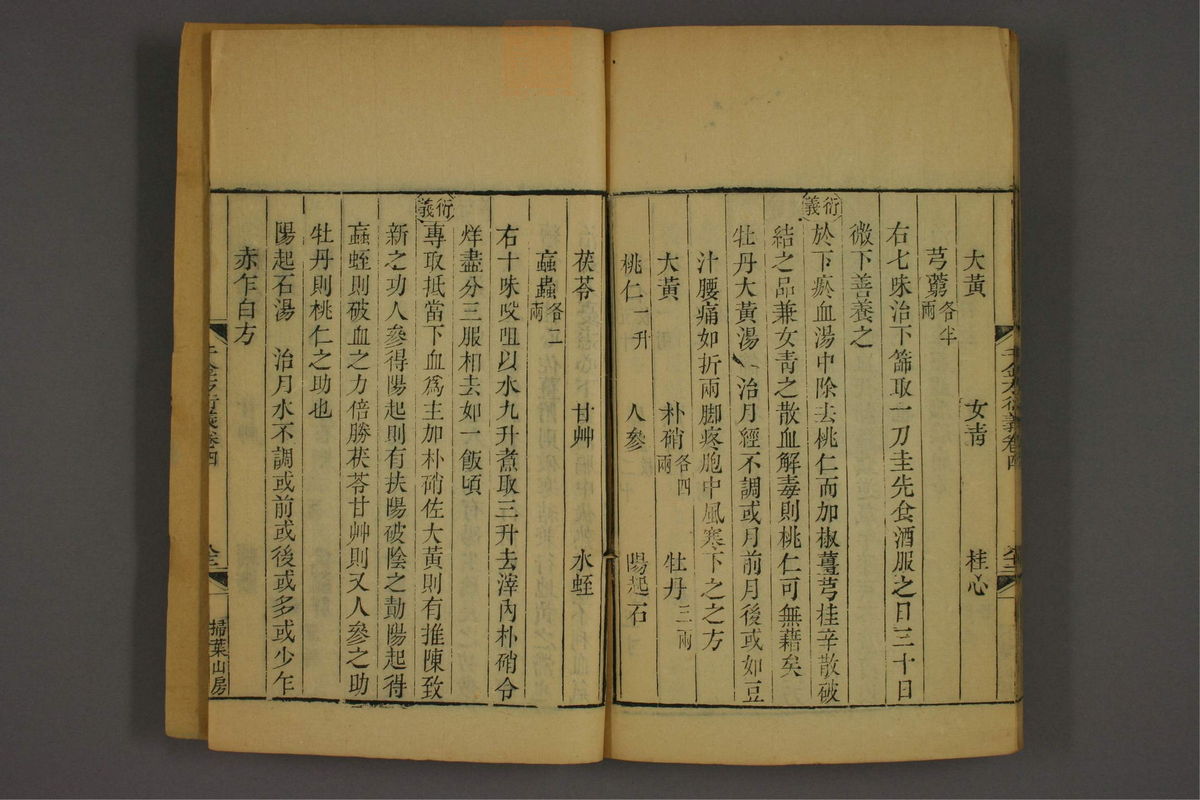 大黃 女青 桂心
芎藭各半兩
右七味治下篩取一刀圭先食酒服之日三十日
微下善養之
衍義 於下瘀血湯中除去桃仁而加椒薑芎桂辛散破
結之品兼女青之散血解毒則桃仁可無藉矣
牡丹大黃湯 治月經不調或月前月後或如豆
汁腰痛如折兩脚疼胞中風寒下之之方
大黃 朴硝各四兩 牡丹三兩
桃仁一升 人參 陽起石
茯苓 甘艸 水蛭
蝱蟲各二兩
右十味㕮咀以水九升煮取三升去滓內朴硝令
烊盡分三服相去如一飯頃
衍義 專取抵當下血爲主加朴硝佐大黃則有推陳致
新之功人參得陽起則有扶陽破陰之勣陽起得
蝱蛭則破血之力倍勝茯苓甘艸則又人參之助
牡丹則桃仁之助也
陽起石湯 治月水不調或前或後或多或少乍
赤乍白方
掃葉山房